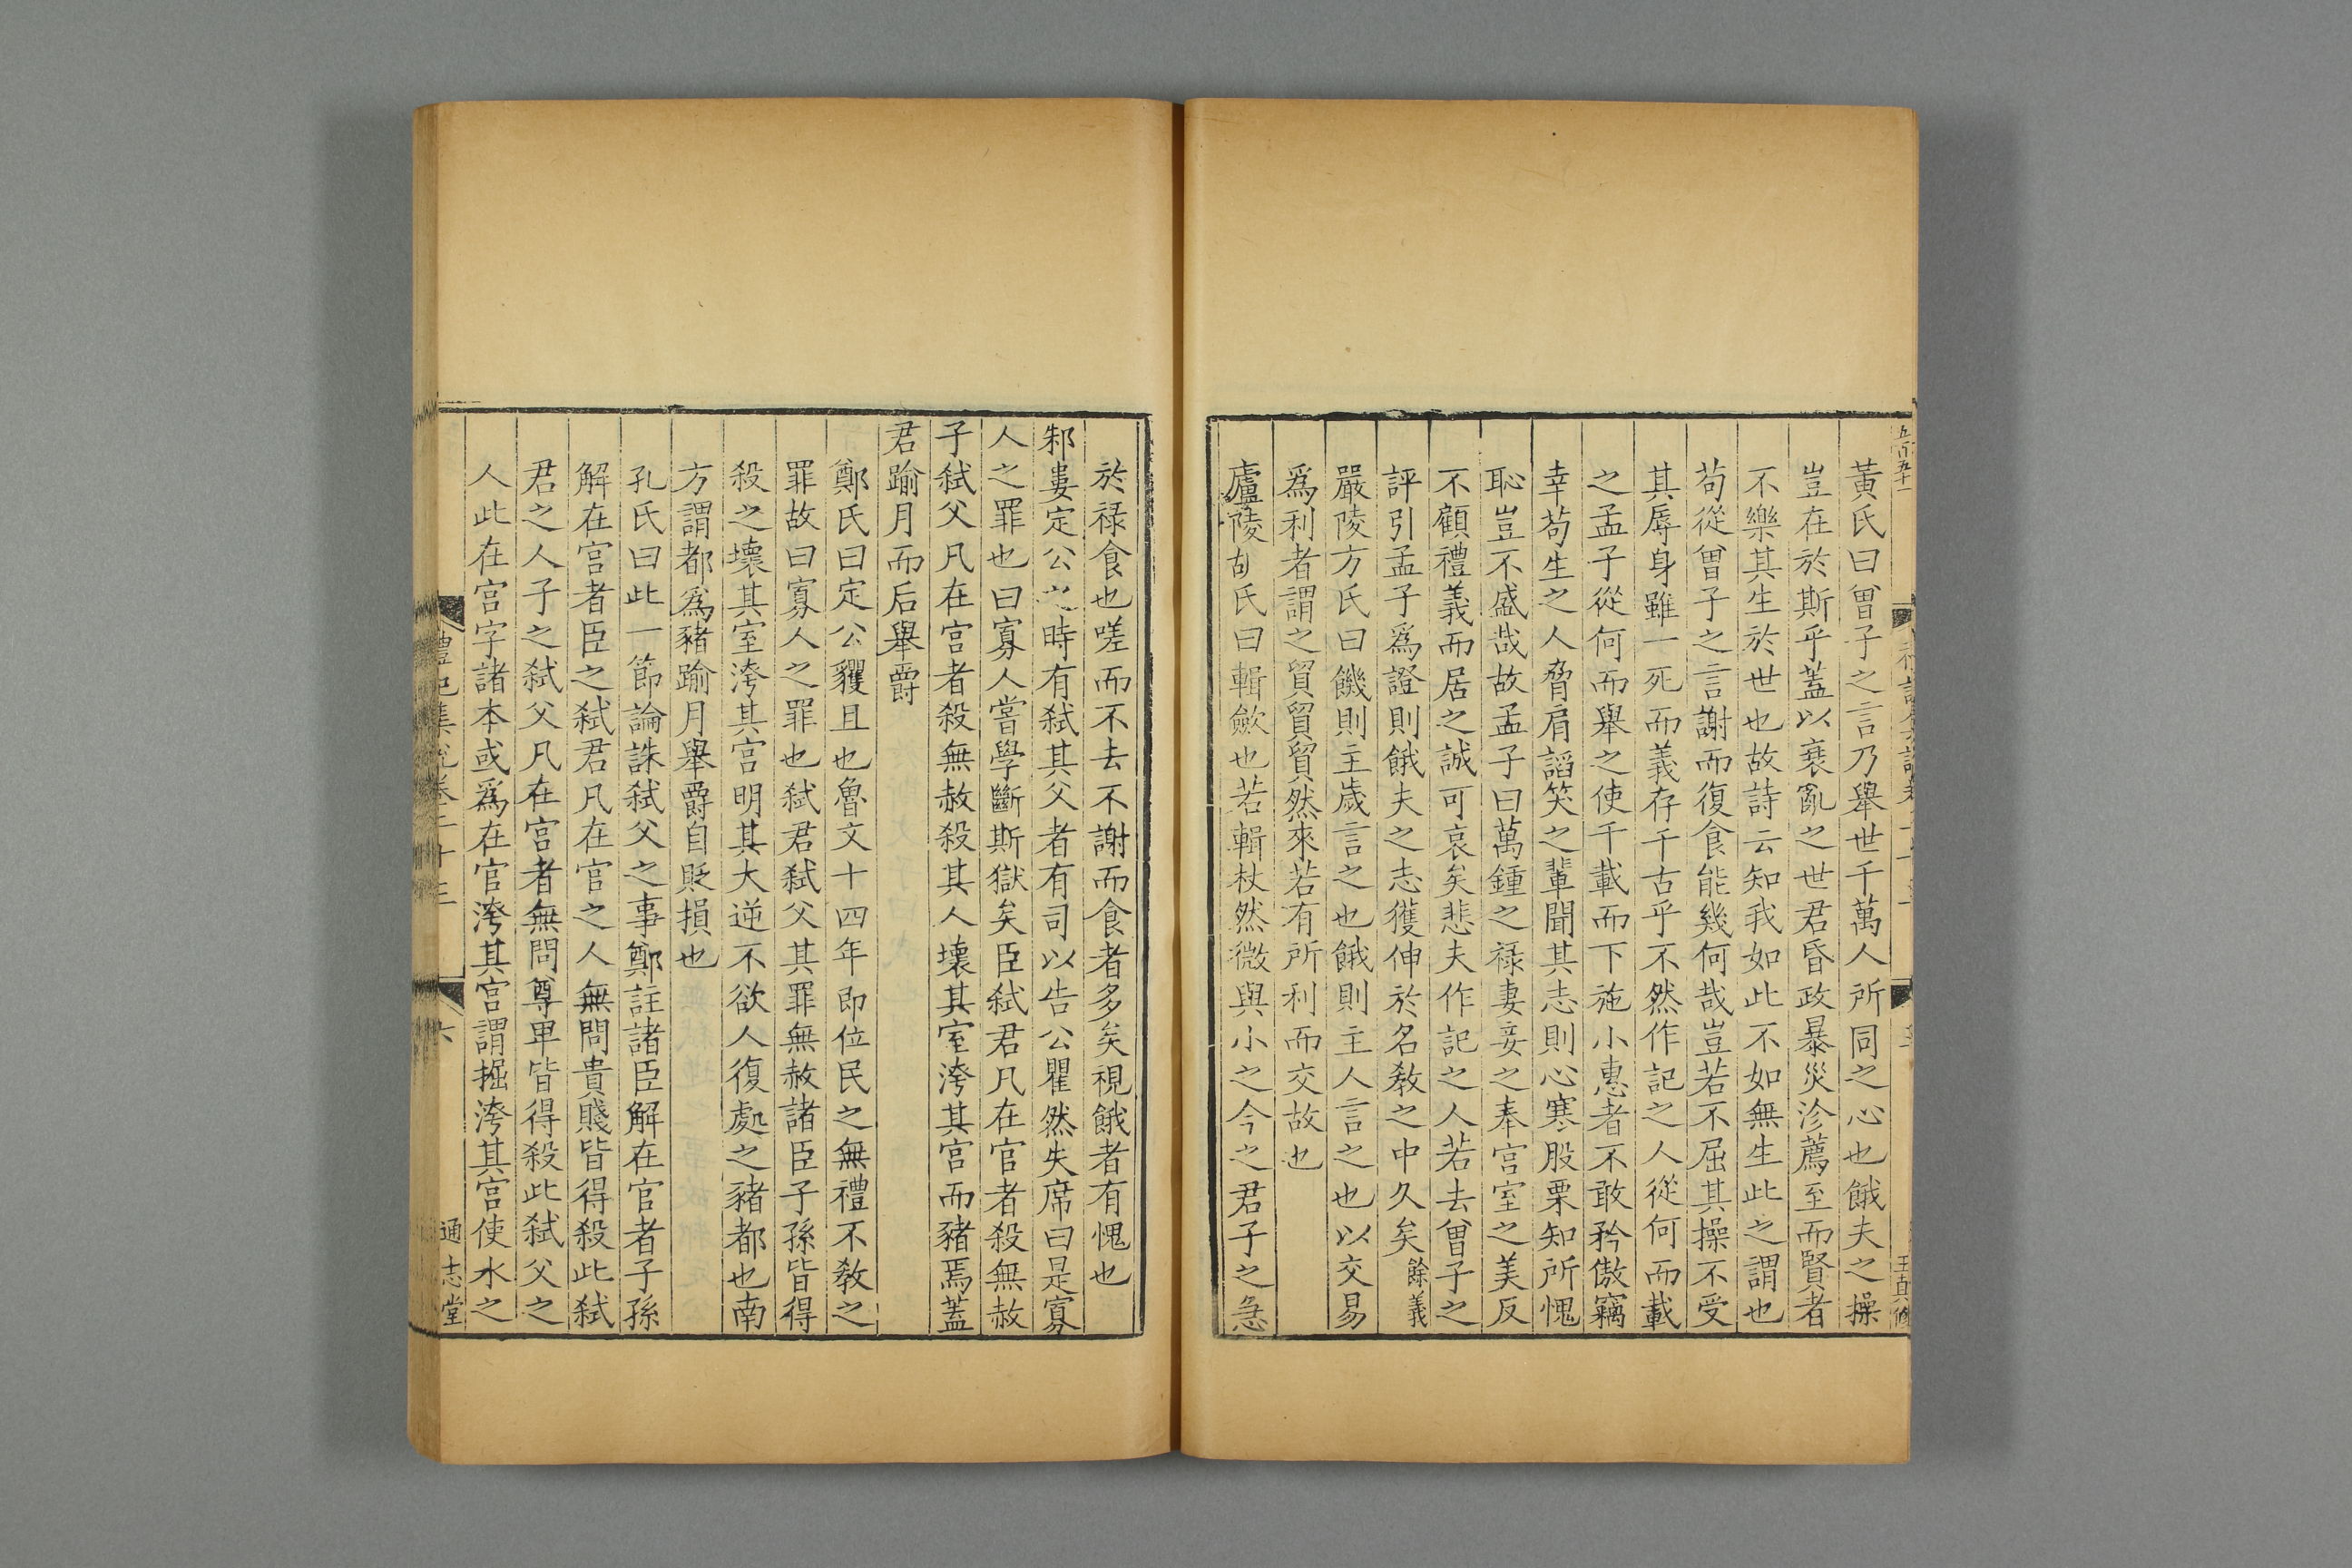 五百五十一
王真脩
黃氏曰曾子之言乃舉世千萬人所同之心也餓夫之操
豈在於斯乎蓋以衰亂之世君昏政暴災沴薦至而賢者
不樂其生於世也故詩云知我如此不如無生此之謂也
苟從曾子之言謝而復食能幾何哉豈若不屈其操不受
其辱身雖一死而義存千古乎不然作記之人從何而載
之孟子從何而舉之使千載而下施小惠者不敢矜傲竊
幸苟生之人脅肩諂笑之輩聞其志則心寒股栗知所愧
恥豈不盛哉故孟子曰萬鍾之祿妻妾之奉宮室之美反
不顧禮義而居之誠可哀矣悲夫作記之人若去曾子之
評引孟子為證則餓夫之志獲伸於名敎之中久矣餘義
嚴陵方氏曰饑則主歲言之也餓則主人言之也以交易
為利者謂之貿貿貿然來若有所利而交故也
廬陵胡氏曰輯歛也若輯杖然微與小之今之君子之急
於祿食也嗟而不去不謝而食者多矣視餓者有愧也
邾婁定公之時有弑其父者有司以告公瞿然失席曰是寡
人之罪也曰寡人嘗學斷斯獄矣臣弑君凡在官者殺無赦
子弑父凡在宮者殺無赦殺其人壞其室洿其宮而豬焉蓋
君踰月而后舉爵
鄭氏曰定公貜且也魯文十四年即位民之無禮不敎之
罪故曰寡人之罪也弑君弑父其罪無赦諸臣子孫皆得
殺之壞其室洿其宮明其大逆不欲人復處之豬都也南
方謂都為豬踰月舉爵自貶損也
孔氏曰此一節論誅弑父之事鄭註諸臣解在官者子孫
解在宮者臣之弑君凡在官之人無問貴賤皆得殺此弑
君之人子之弑父凡在宮者無問尊卑皆得殺此弑父之
人此在宮字諸本或為在官洿其宮謂掘洿其宮使水之
禮記集說卷二十三
六
通志堂